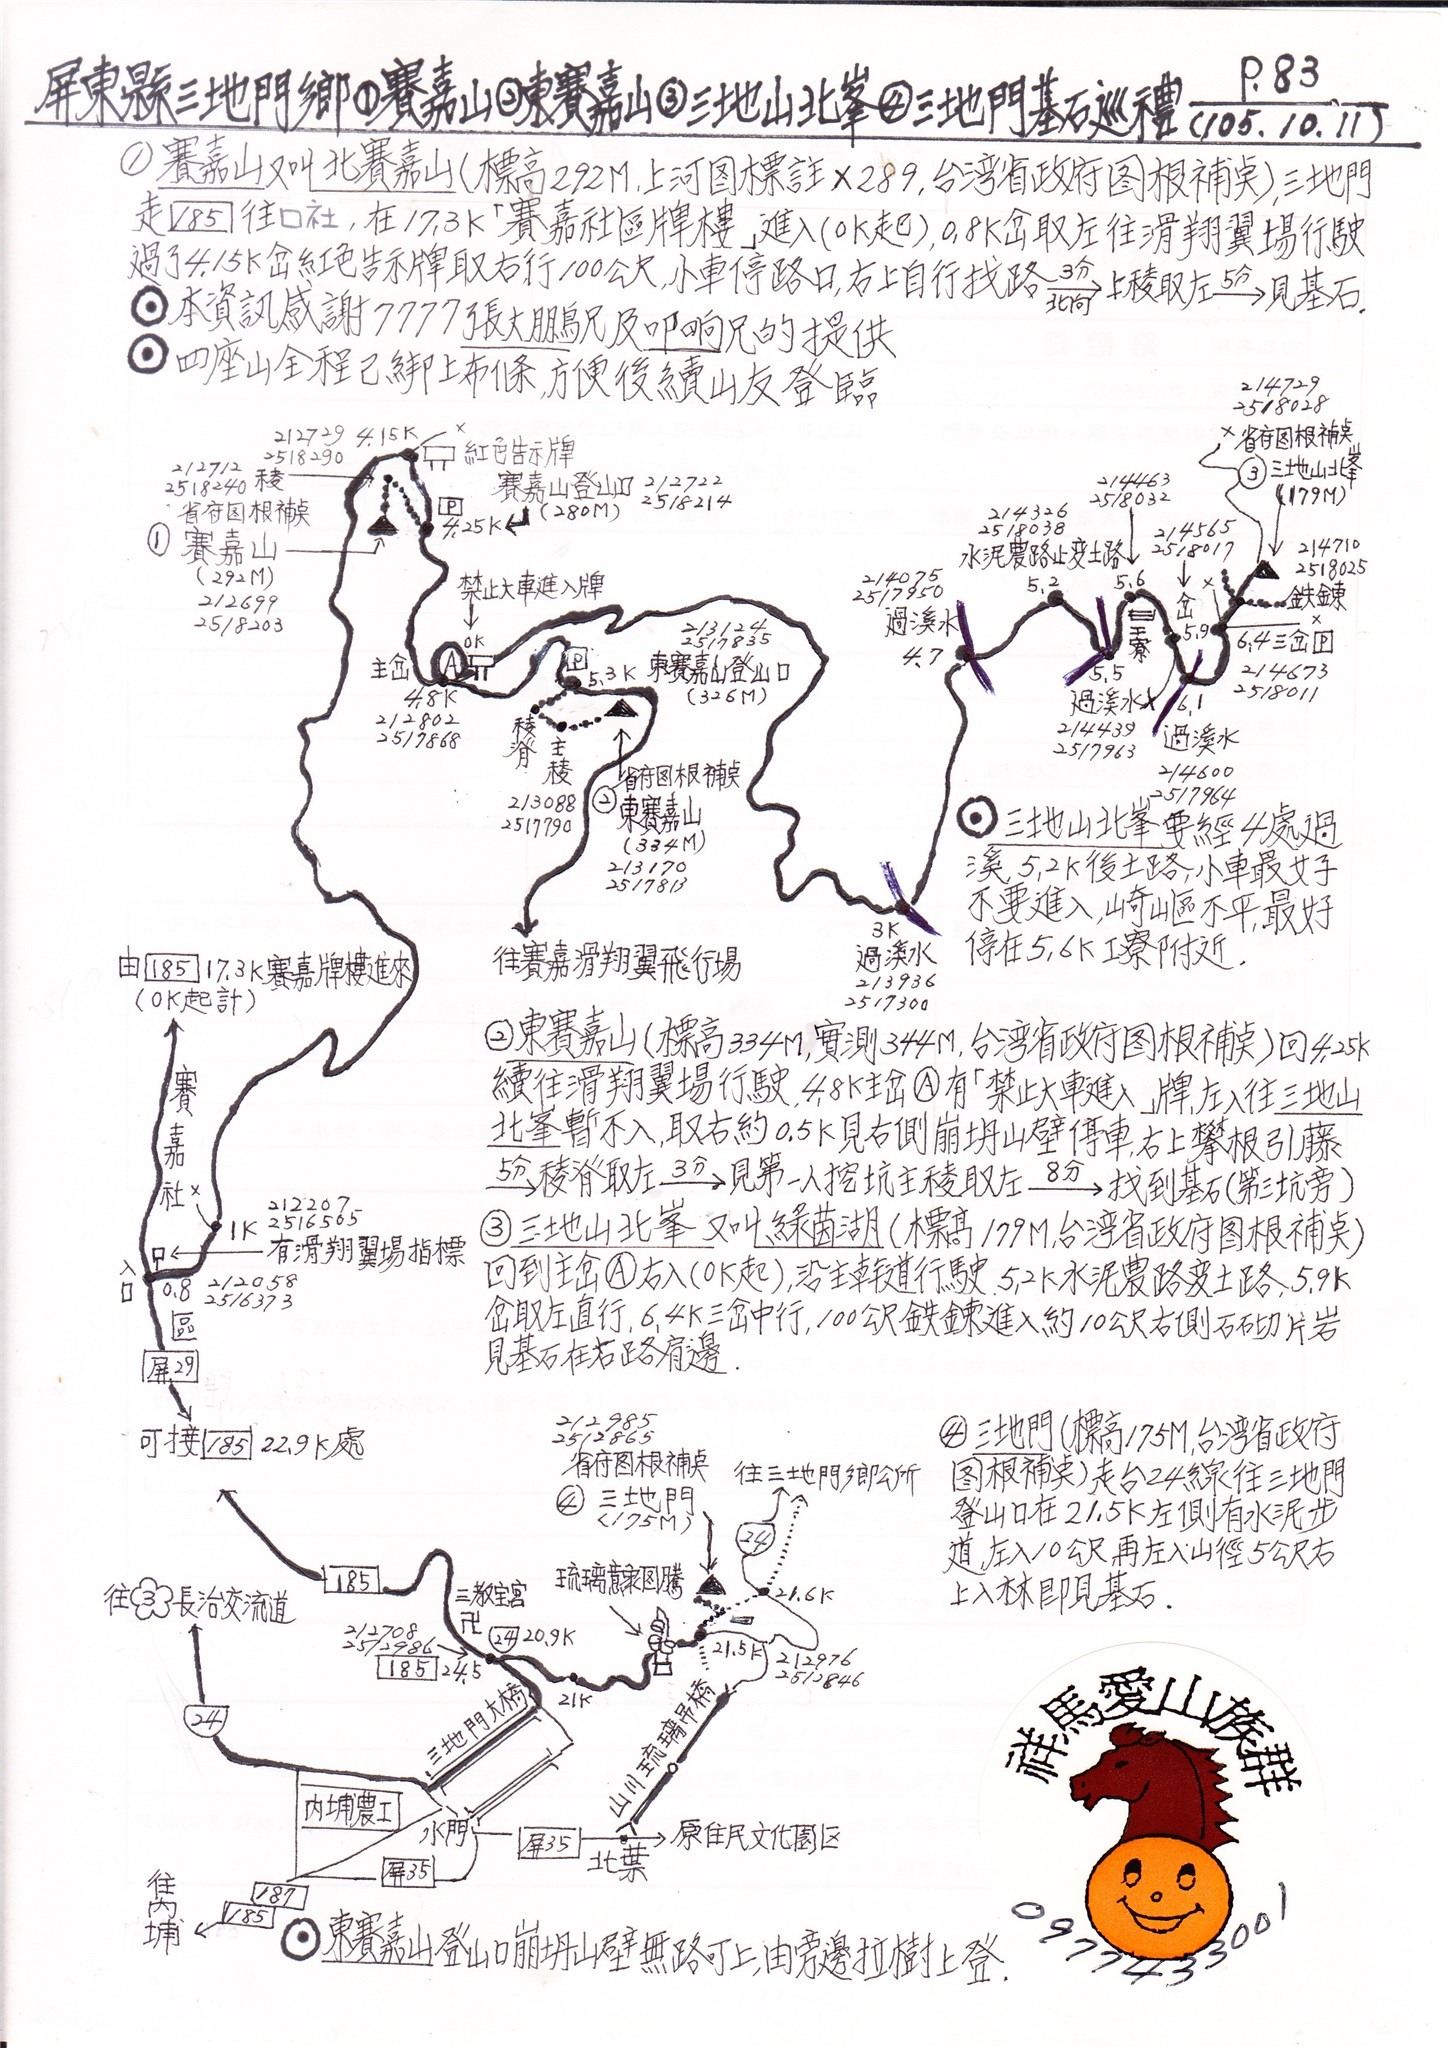 屏東縣三地門鄉①賽嘉山②東賽嘉山③三地山北峯④三地門基石巡禮
P.83
(105.10.11)
① 賽嘉山又叫北賽嘉山(標高292M,上河图標註×289,台湾省政府图根補奌),三地門
走185往口社,在17.3K「賽嘉社區牌樓」進入(0K起),0.8K岔取左往滑翔翼場行駛
過了4.15K岔紅色告示牌取右行100公尺,小車停路口,右上自行找路3分北向上稜取左5分見基石.
⊙本資訊感謝7777張大鵬兄及叩响兄的提供
⊙四座山全程已綁上布條,方便後續山友登臨
212729
2518290
4.15K
×
紅色告示牌
212712
2518240 稜
省府图根補奌
① 賽嘉山
(292M)
212699
2518203
P
4.25K
賽嘉山登山口
(280M)
212722
2518214
禁止大車進入牌
0K
主岔
A
4.8K
212802
2517868
P
5.3K
213124
2517835
東賽嘉山登山口
(326M)
稜脊
主稜
213088
2517790
省府图根補奌
② 東賽嘉山
(334M)
213170
2517813
往賽嘉滑翔翼飛行場
3K
過溪水
213936
2517300
214075
2517950
過溪水
4.7
214326
2518038
水泥農路止变土路
5.2
214463
2518032
5.6
工寮
5.5
過溪水
214439
2517963
214565
2518017
岔
5.9
×
6.1
過溪水
214600
2517964
214729
2518028
× 省府图根補奌
③ 三地山北峯
(179M)
214710
2518025
鉄鍊
×
6.4三岔P
214673
2518011
⊙三地山北峯要經4處過
溪,5.2K後土路,小車最好
不要進入,崎嶇不平,最好
停在5.6K工寮附近.
由185 17.3K賽嘉牌樓進來
(0K起計)
賽嘉社區
×
1K
212207
2516565
有滑翔翼場指標
入口
0.8
212058
2516373
屏29
可接185 22.9K處
② 東賽嘉山(標高334M,實測344M,台湾省政府图根補奌)回4.25K
續往滑翔翼場行駛,4.8K主岔Ⓐ有「禁止大車進入」牌,左入往三地山
北峯暫不入,取右約0.5K見右側崩坍山壁停車,右上攀根引藤
5分稜脊取左3分見第一人挖坑主稜取左8分找到基石(第三坑旁)
③ 三地山北峯又叫綠茵湖(標高179M,台湾省政府图根補奌)
回到主岔Ⓐ右入(0K起),沿主幹道行駛,5.2K水泥農路变土路,5.9K
岔取左直行,6.4K三岔中行,100公尺鉄鍊進入約10公尺右側石切片岩
見基石在右路肩邊.
212985
2512865
省府图根補奌
④ 三地門
(175M)
往三地門鄉公所
24
④ 三地門(標高175M,台湾省政府
图根補奌)走台24線往三地門
登山口在21.5K左側有水泥步
道,左入10公尺再左入山徑5公尺右
上入林即見基石.
185
往3長治交流道
三教宝宮
卍
琉璃意象图騰
21.6K
212708
2512986
185 24.5
24 20.9K
21K
21.5K
212976
2512846
24
三地門大橋
山川琉璃吊橋
內埔農工
水門
屏35
原住民文化園区
北葉
屏35
往內埔
187
185
⊙東賽嘉山登山口崩坍山壁無路可上,由旁邊拉樹上登.
祥馬愛山族群
0977433001